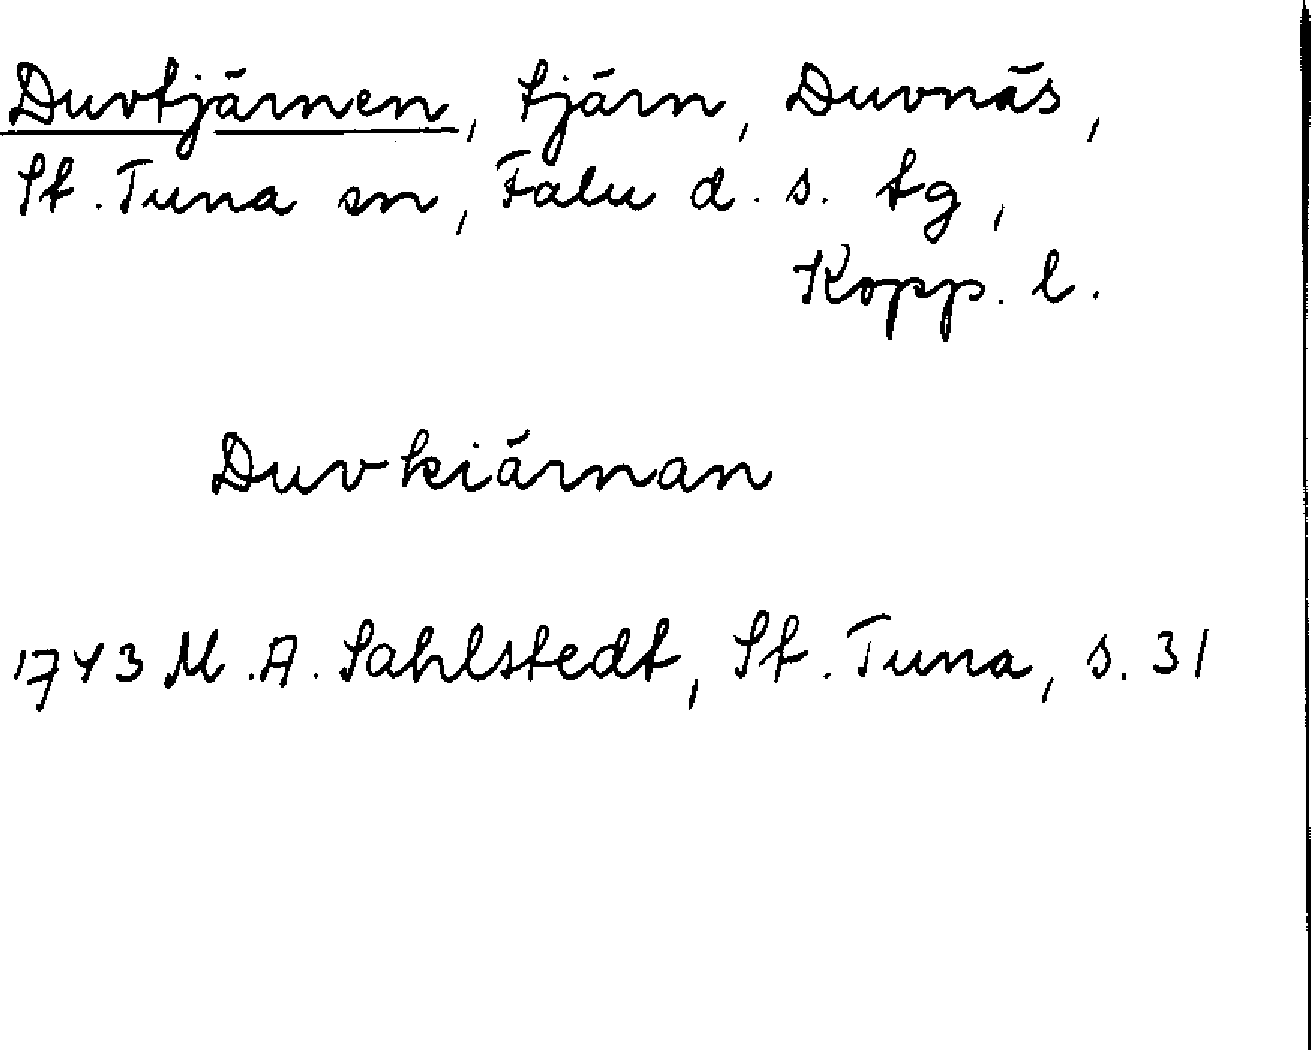 Duvtjärnen, tjärn, Duvnäs,
St. Tuna sn, Falu d. s. tg,
Kopp. l.
Duvkiärnan
1743 M. A. Sahlstedt, St. Tuna, s. 31